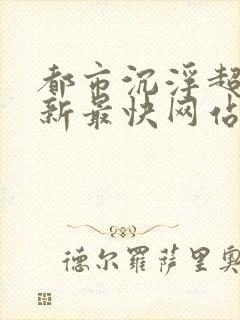 都市沉浮超
新最快网站
德尔罗萨里奥